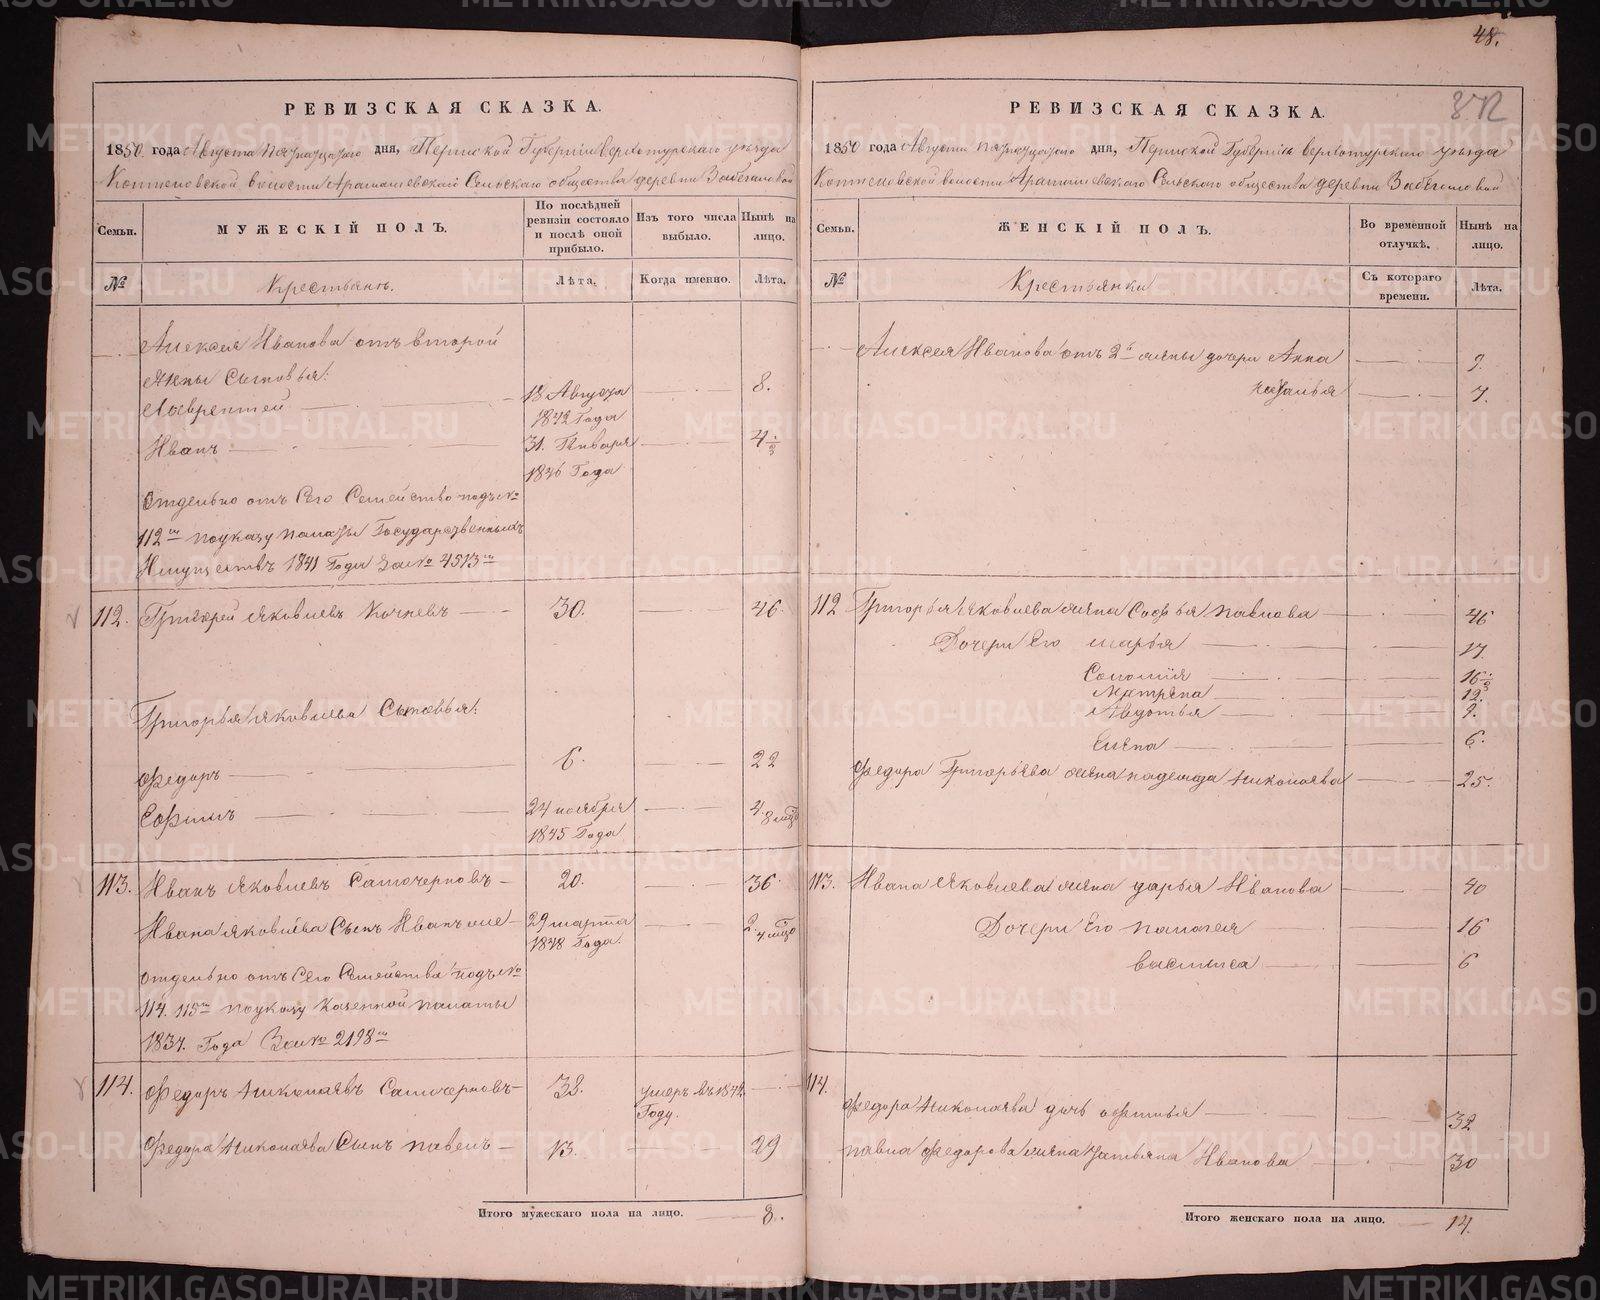 48.
872
РЕВИЗСКАЯ СКАЗКА.
1850 года Августа дня, Пермской Губернии Верхотурскаго уѣзда
Коптеловской волости Арамашевскаго Сельскаго общества деревни
Семьи.
МУЖЕСКІЙ ПОЛЪ.
По послѣдней ревизіи состояло и послѣ оной прибыло.
Изъ того числа выбыло.
Нынѣ на лицо.
№
Крестьянъ.
Лѣта.
Когда именно.
Лѣта.
Алексея Иванова отъ второй
жены сыновья:
Лаврентей 18 Августа 1842 Года 8.
Иванъ 31. Генваря 1846 Года 4
Отдельно отъ сего Семейство подъ №
112 по указу палаты Государственныхъ
Имуществъ 1841 Года за № 4513
112. Григорей Яковлевъ Кочневъ 30. 46.
Григорья Яковлева Сыновья:
Федоръ 6. 22
Ефимъ 24 ноября 1845 Года 4
113. Иванъ Яковлевъ Самочерновъ 20. 36.
Ивана Яковлева Сынъ Иванъ 29 марта 1848 Года. 2.
отдельно отъ сего Семейства подъ №
114. 115 по указу Казенной палаты
1837. Года За № 2198
114. Федоръ Николаевъ Самочерновъ 38. умеръ въ Году.
Федора Николаева Сынъ Павелъ 13. 29
Итого мужескаго пола на лицо. 8.
РЕВИЗСКАЯ СКАЗКА.
1850 года Августа дня, Пермской Губерніи Верхотурскаго уѣзда
Коптеловской волости Арамашевскаго Сельскаго общества деревни
Семьи.
ЖЕНСКІЙ ПОЛЪ.
Во временной отлучкѣ.
Нынѣ на лицо.
№
Крестьянки
Съ котораго времени.
Лѣта.
Алексея Иванова отъ 2й жены дочери Анна 9.
Наталья 7.
112 Григорья Яковлева жена Софья Павлова 46
Дочери Его Марья 17.
Соломия 16
Матрена 12.
Авдотья 9.
Елена 6.
Федора Григорьева жена Надежда Николаева 25.
113. Ивана Яковлева жена Дарья Иванова 40
Дочери Его Палагея 16
Василиса 6
114.
Федора Николаева дочь Офимья 32
Павла Федорова жена Татьяна Иванова 30
Итого женскаго пола на лицо. 14.
METRIKI.GASO-URAL.RU